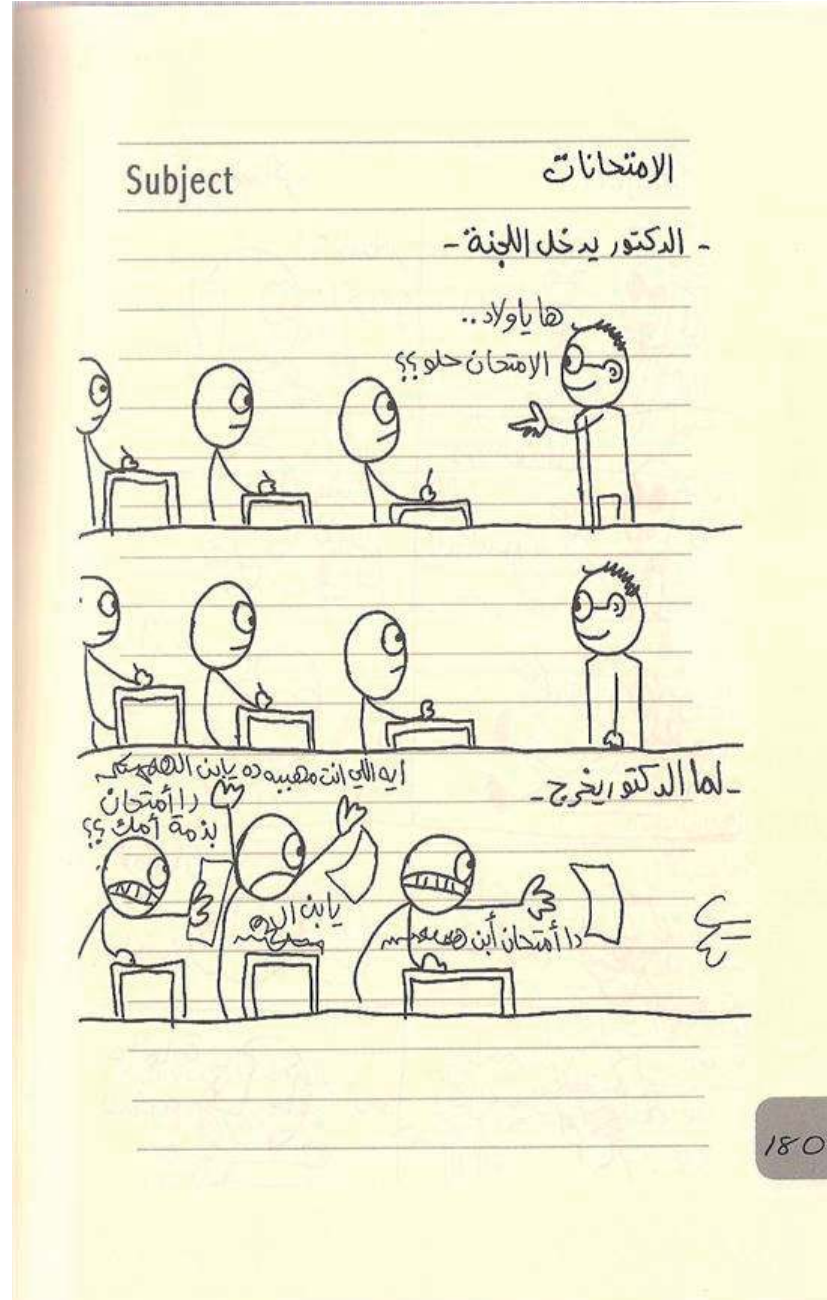 Subject
الامتحانات
- الدكتور يدخل اللجنة -
ها ياولاد..
الامتحان حلو ؟؟
- لما الدكتور يخرج -
ايه اللي انت مهببه ده يابن
دا أمتحان
بذمة أمك ؟؟
يابن ال
دا أمتحان أبن
180